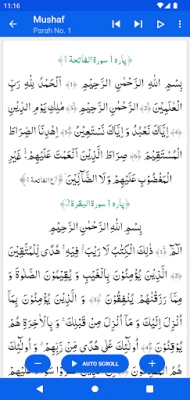 11:16
Mushaf
Parah No. 1
﴿پاره ۱ سورة الفاتحة 1﴾
بِسْمِ اللهِ الرَّحْمٰنِ الرَّحِيْمِ ﴿۱﴾ اَلْحَمْدُ لِلّٰهِ رَبِّ
الْعٰلَمِيْنَ ﴿۲﴾ الرَّحْمٰنِ الرَّحِيْمِ ﴿۳﴾ مٰلِكِ يَوْمِ الدِّيْنِ
﴿۴﴾ اِيَّاكَ نَعْبُدُ وَ اِيَّاكَ نَسْتَعِيْنُ ﴿۵﴾ اِهْدِنَا الصِّرَاطَ
الْمُسْتَقِيْمَ ﴿۶﴾ صِرَاطَ الَّذِيْنَ اَنْعَمْتَ عَلَيْهِمْ ۙ غَيْرِ
الْمَغْضُوْبِ عَلَيْهِمْ وَ لَا الضَّآلِّيْنَ ﴿۷﴾
﴿پاره ۱ سورة البقرة 2﴾
بِسْمِ اللهِ الرَّحْمٰنِ الرَّحِيْمِ
الٓمّٓ ﴿۱﴾ ذٰلِكَ الْكِتٰبُ لَا رَيْبَ ۛ فِيْهِ ۛ هُدًى لِّلْمُتَّقِيْنَ
﴿۲﴾ الَّذِيْنَ يُؤْمِنُوْنَ بِالْغَيْبِ وَ يُقِيْمُوْنَ الصَّلٰوةَ وَ
مِمَّا رَزَقْنٰهُمْ يُنْفِقُوْنَ ﴿۳﴾ وَ الَّذِيْنَ يُؤْمِنُوْنَ بِمَاۤ
اُنْزِلَ اِلَيْكَ وَ مَاۤ اُنْزِلَ مِنْ قَبْلِكَ ۚ وَ بِالْاٰخِرَةِ هُمْ
يُوْقِنُوْنَ ﴿۴﴾ اُولٰٓئِكَ عَلٰى هُدًى مِّنْ رَّبِّهِمْ ۗ وَ اُولٰٓئِكَ
AUTO SCROLL